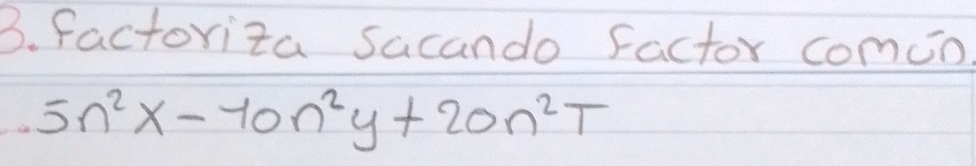 3. factoriza sacando factor común.
5n²x - 10n²y + 20n²T